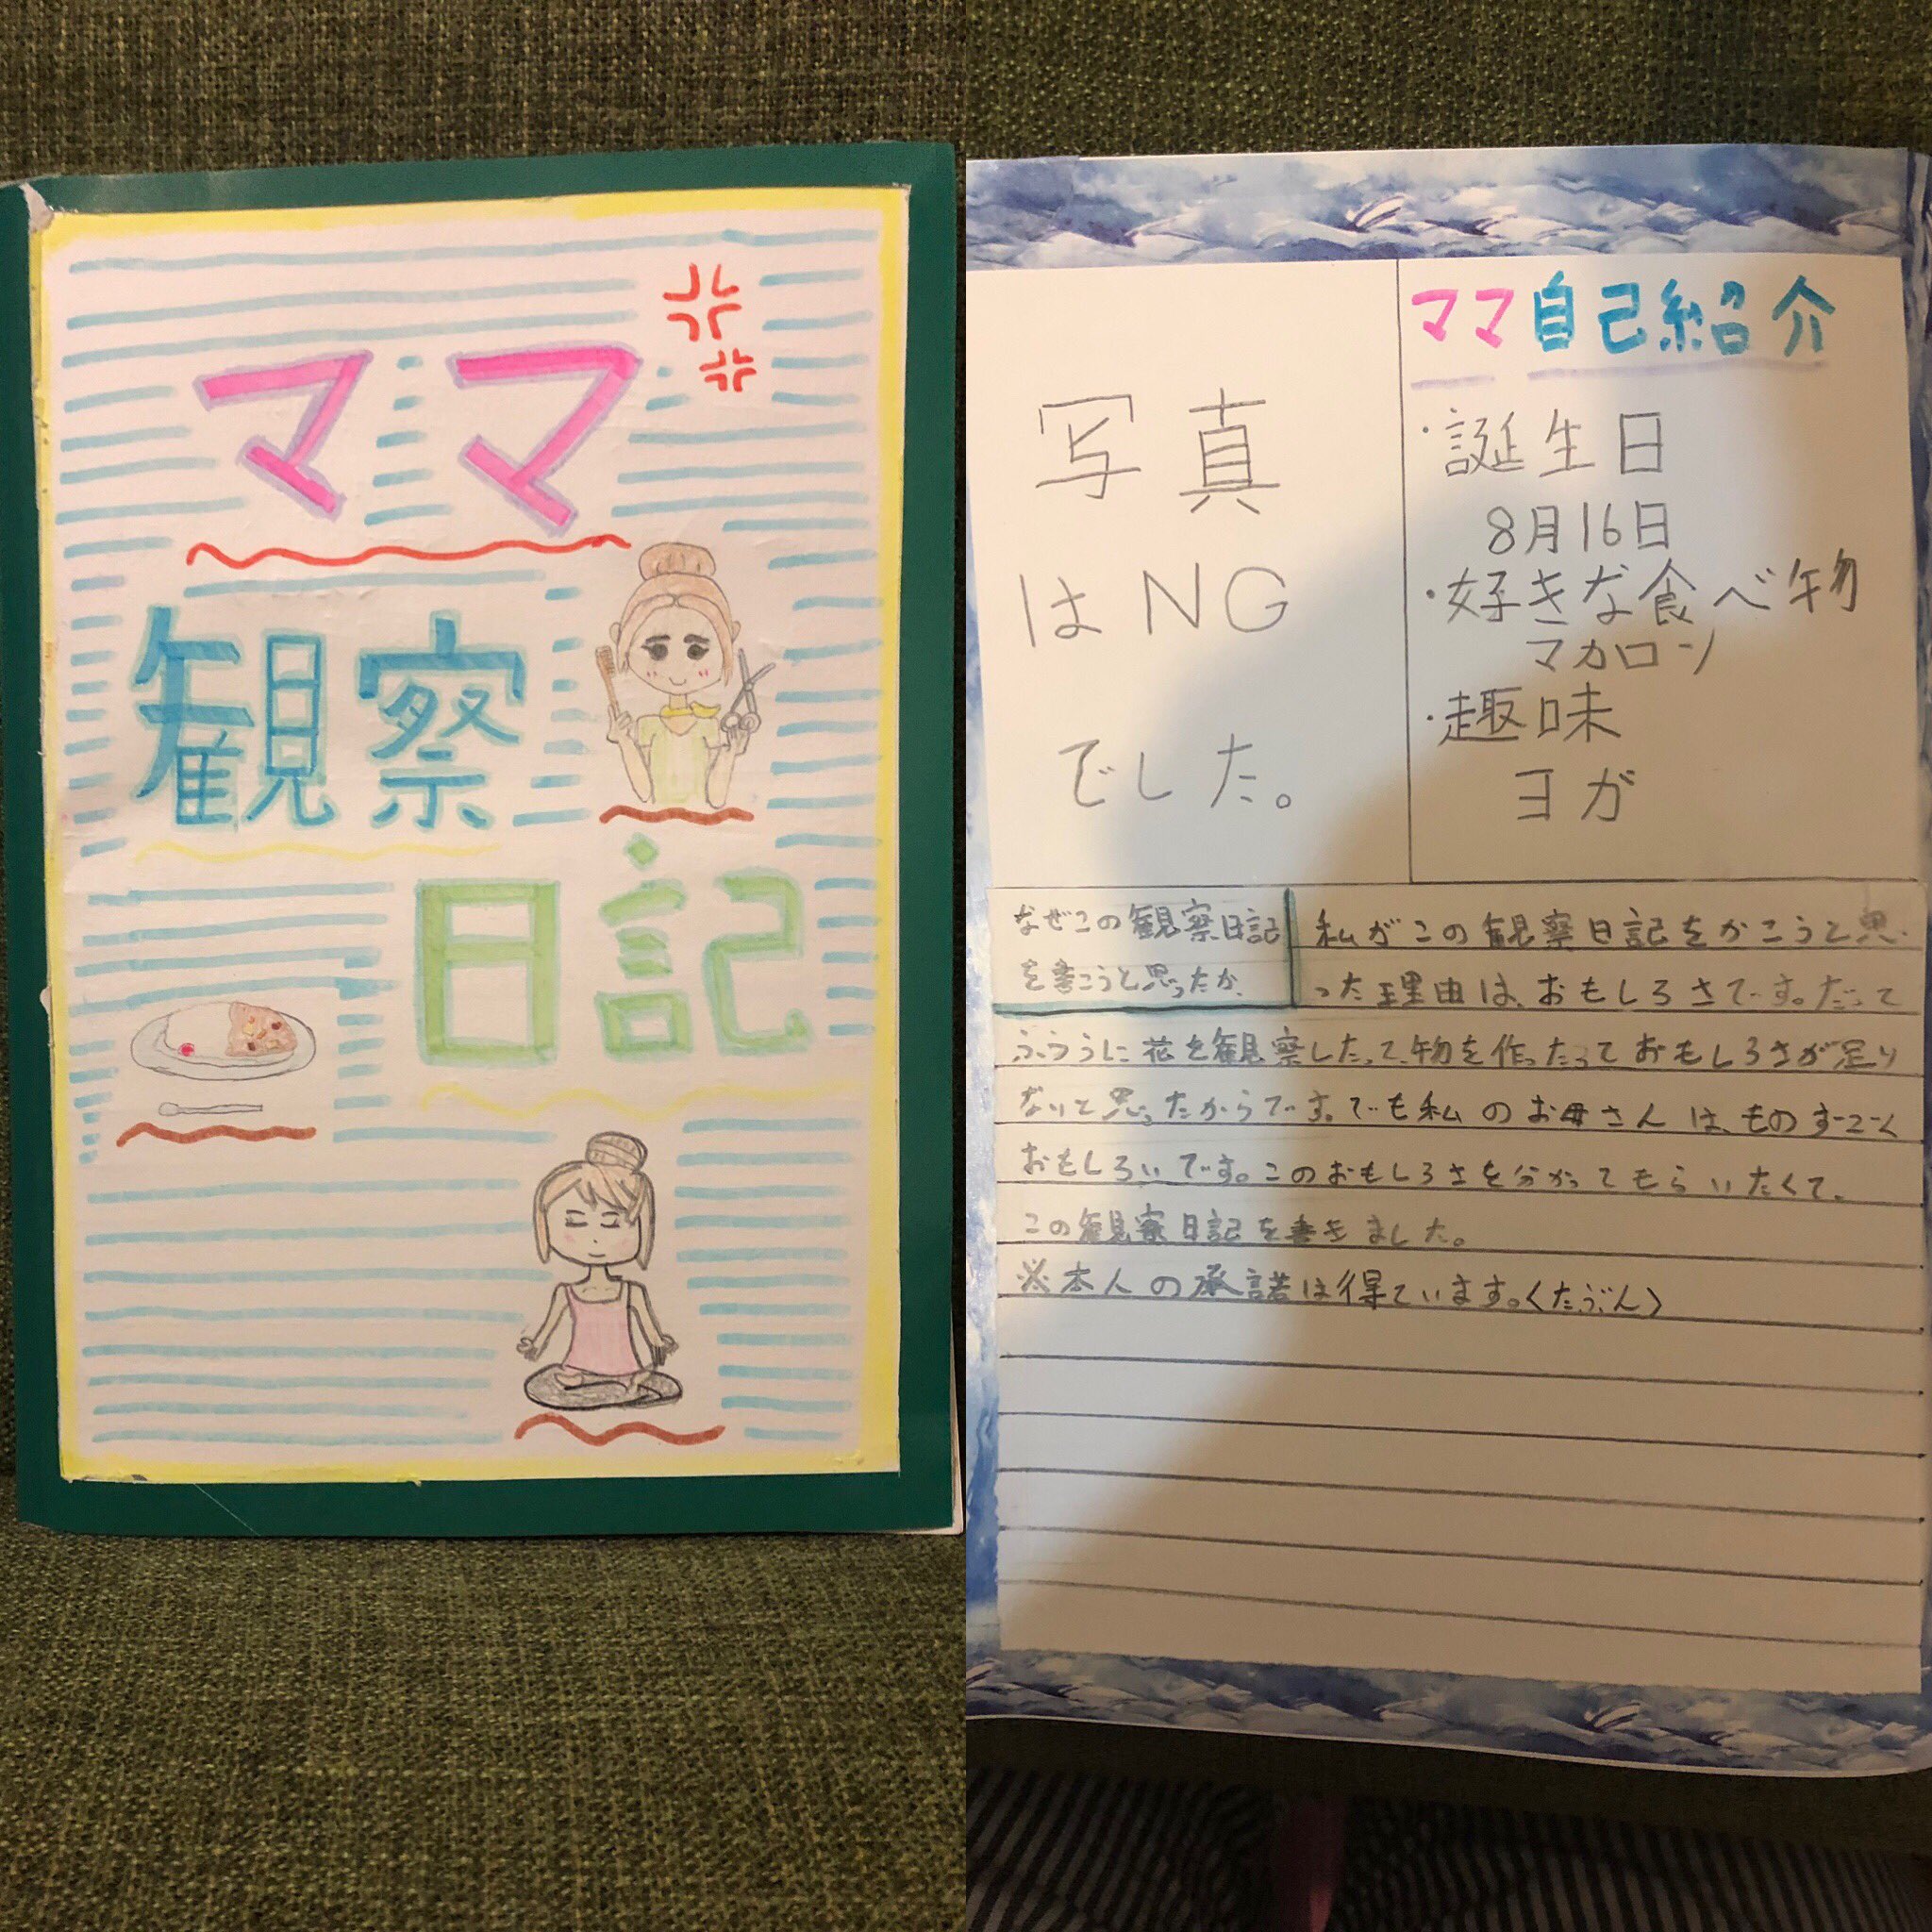 ママ
観察
日記
写真
はNG
でした。
ママ自己紹介
・誕生日
8月16日
・好きな食べ物
マカロン
・趣味
ヨガ
なぜこの観察日記
を書こうと思ったか、
私がこの観察日記をかこうと思
った理由は、おもしろさです。だって
ふつうに花を観察したって、物を作ったっておもしろさが足り
ないと思ったからです。でも私のお母さんは、ものすーごーく
おもしろいです。このおもしろさを分かってもらいたくて、
この観察日記を書きました。
※本人の承諾は得ています。〈たぶん〉